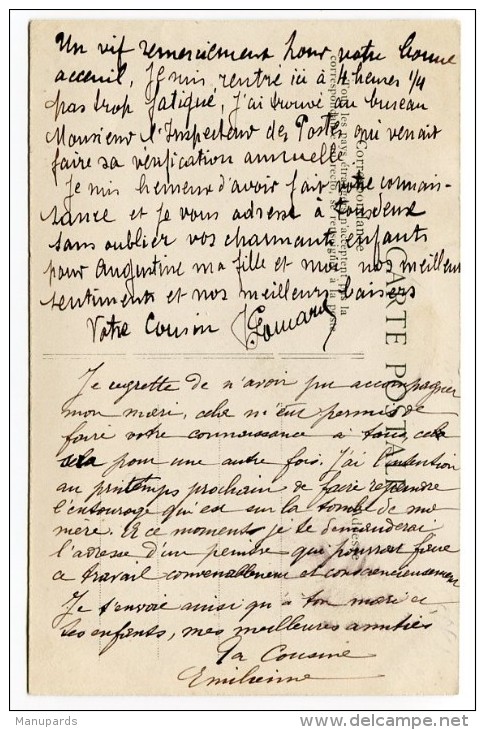 Un vif remerciement pour votre bonne
acceuil, Je suis, rentré ici à 4 heures 1/4
pas trop fatigué, j'ai trouvé au bureau
Monsieur l'Inspecteur des Postes qui venait
faire sa vérification annuelle.
Je suis heureux d'avoir fait votre connais-
sance et je vous adresse à tous deux
sans oublier vos charmants enfants
pour Augustine ma fille et moi nos meilleurs
sentiments et nos meilleurs baisers
Votre Cousin
Je regrette de n'avoir pu accompagner
mon mari, cela m'eut permis de
faire votre connaissance a tous, cela
sera pour une autre fois. J'ai l'intention
au printemps prochain de faire repeindre
l'entourage qui est sur la tombe de ma
mère. A ce moment je te demanderai
l'adresse d'un peintre qui pourrait faire
ce travail convenablement et consciencieusement
Je t'envoie ainsi qu'a ton mari et
tes enfants, mes meilleures amitiés
Ta Cousine
Emilienne
CARTE POSTALE
Correspondance
Adresse
Manupards
delcampe.net